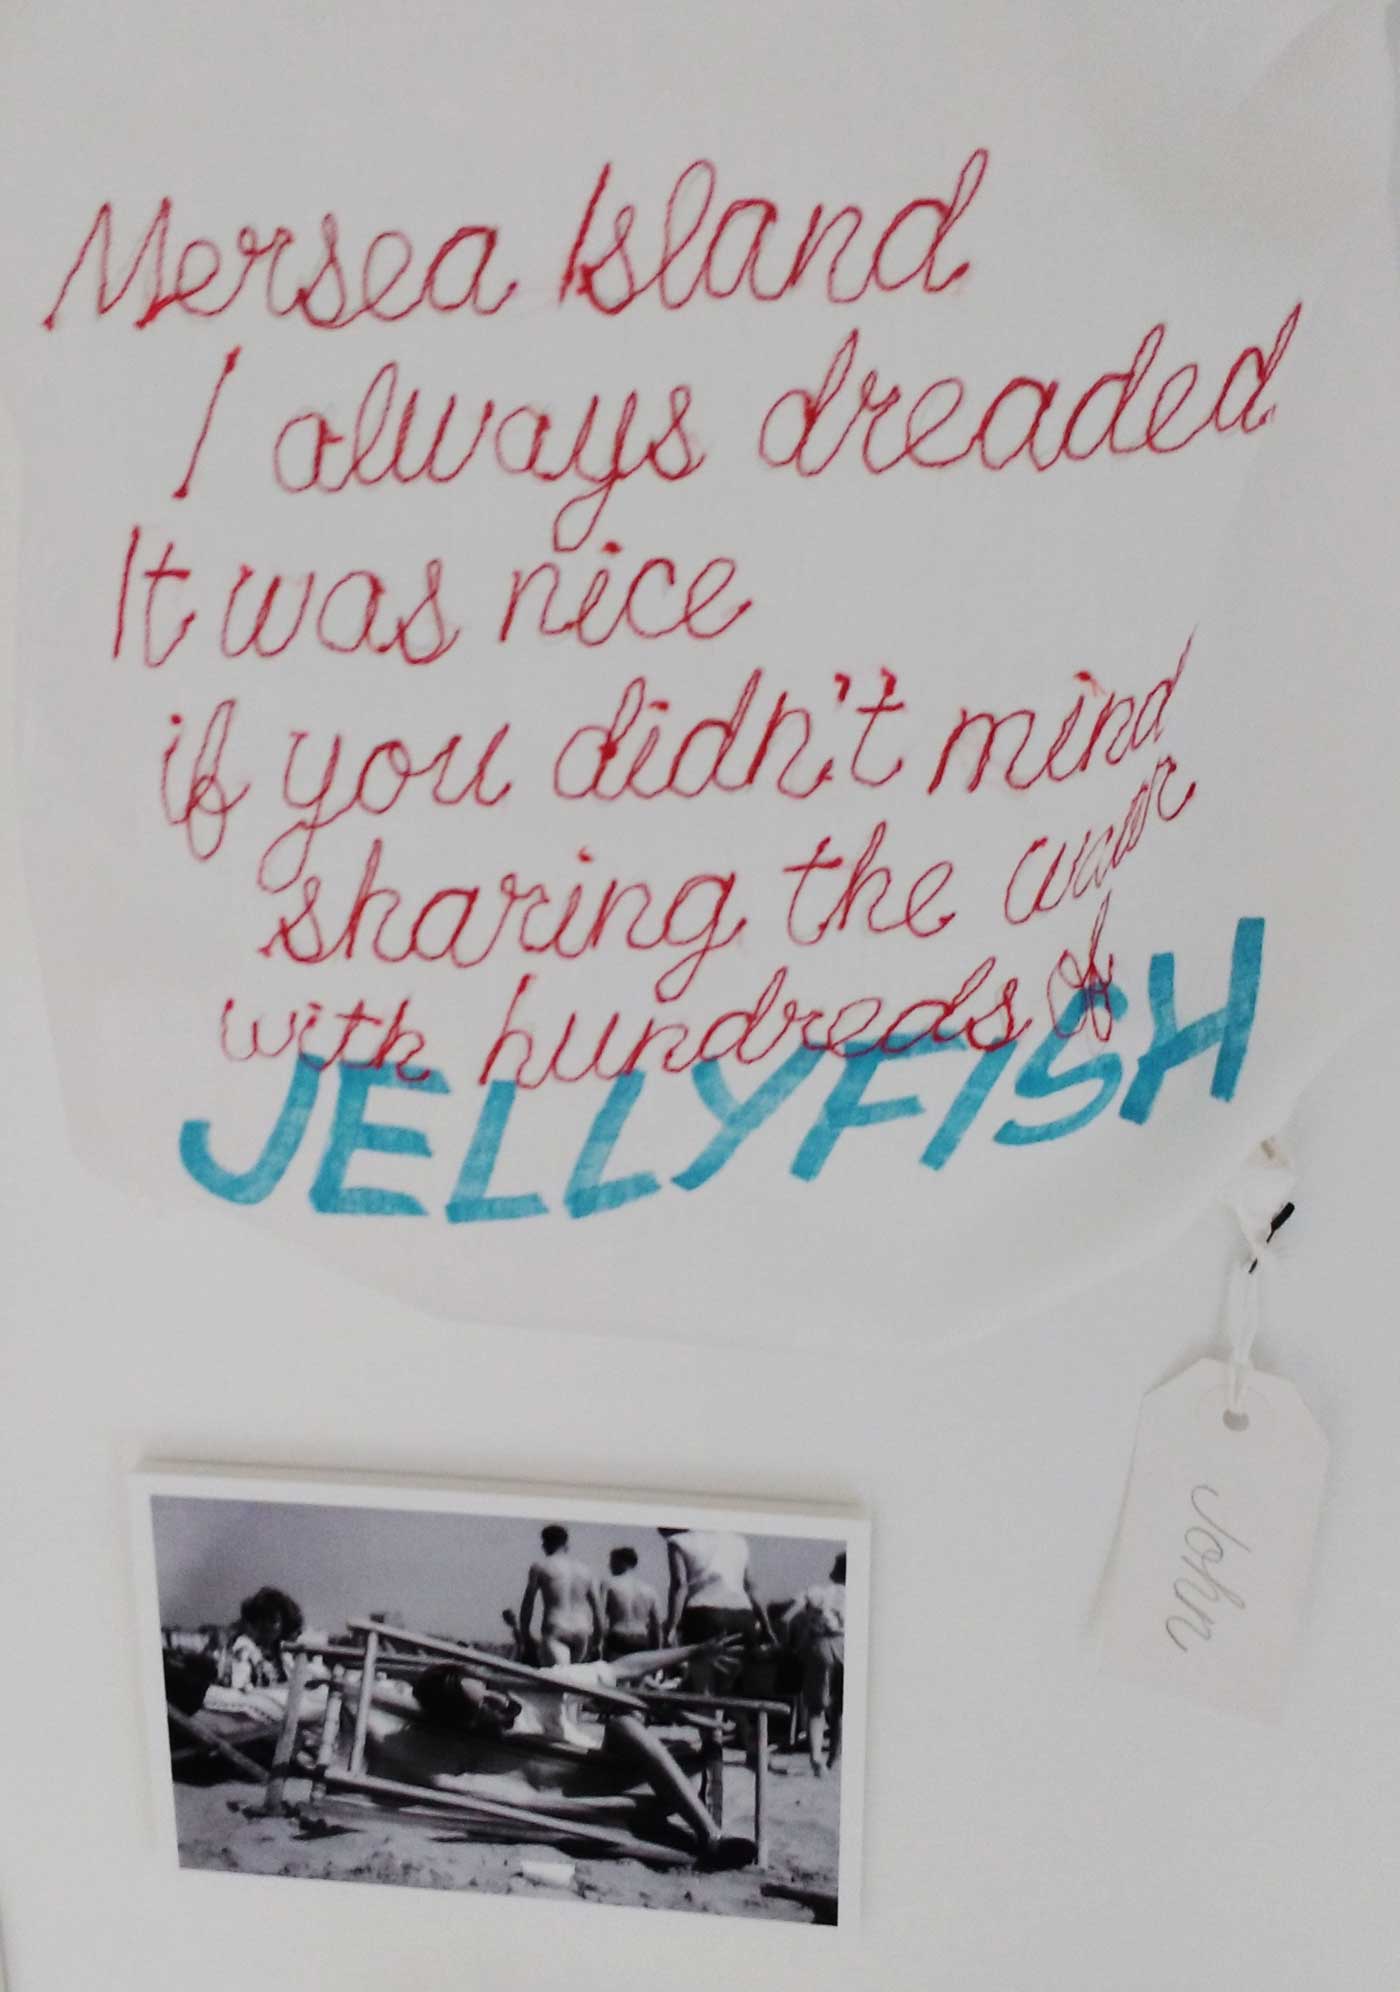 Mersea Island
I always dreaded
It was nice
if you didn't mind
sharing the water
with hundreds of
JELLYFISH
John